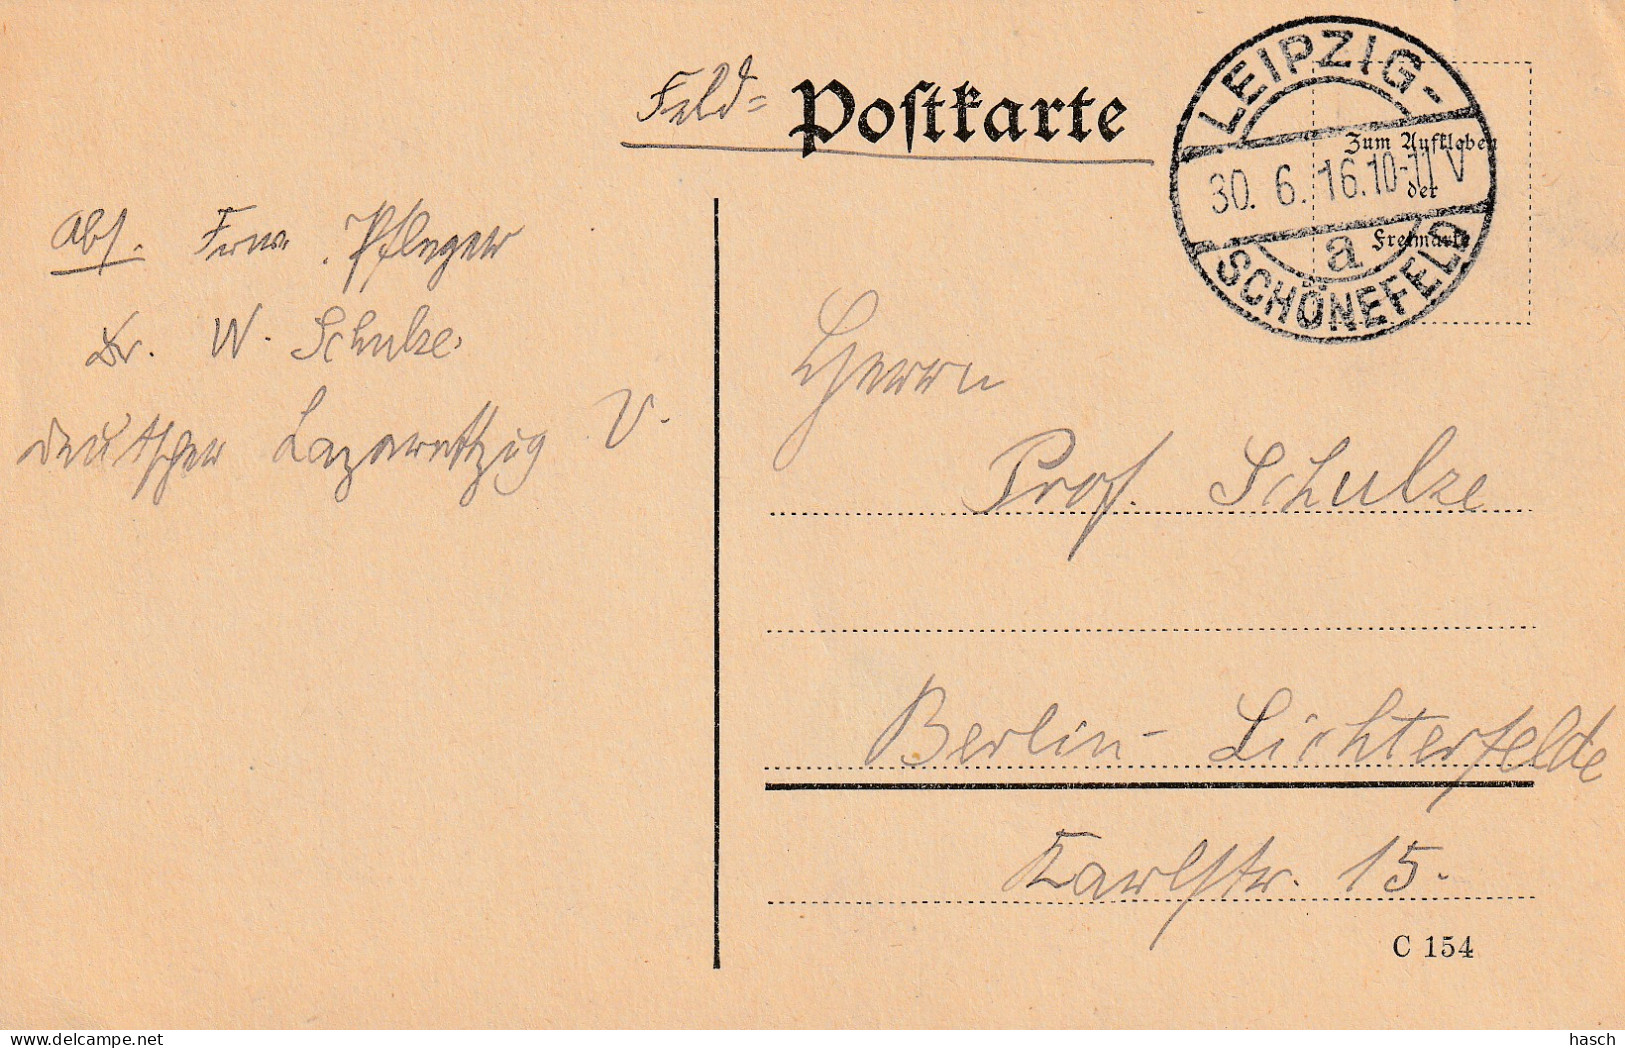 Feld= Postkarte
LEIPZIG-
30. 6. 16. 10-11 V
a
SCHÖNEFELD
Zum Aufkleben
der
Freimarke
Abs. Pfleger
Dr. W. Schulze.
Deutscher Lazarettzug V.
Herrn
Prof. Schulze
Berlin-Lichterfelde
Karlstr. 15.
C 154
delcampe.net
hasch